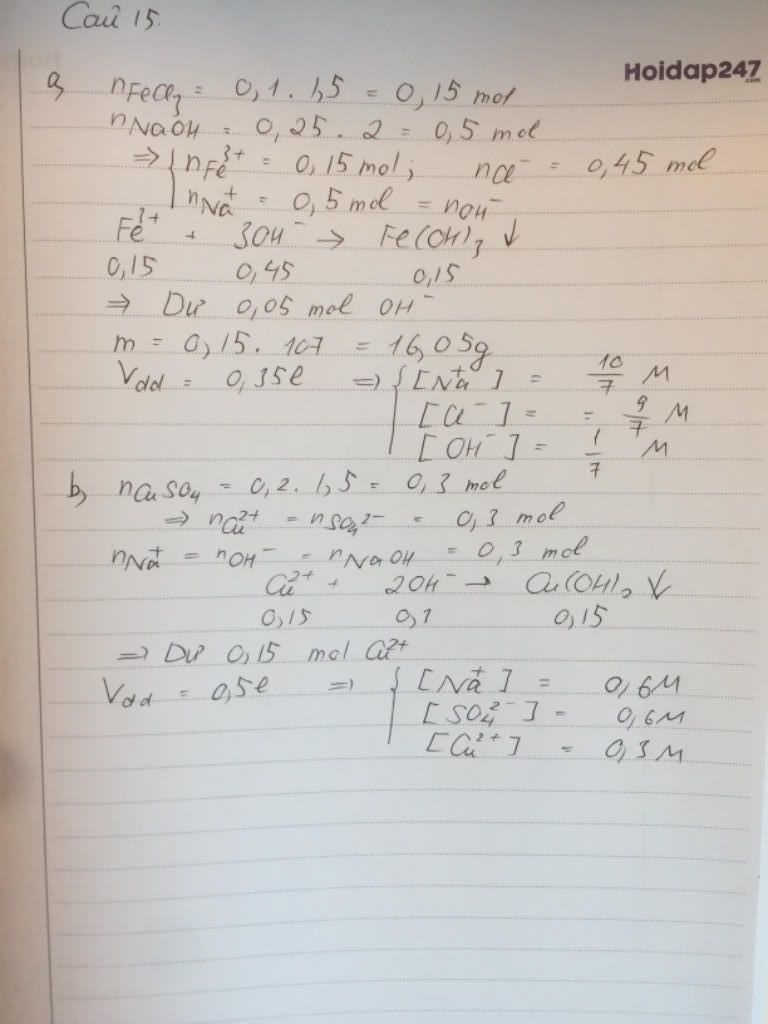 Câu 15.
Hoidap247.com
a, nFeCl₃ = 0,1 . 1,5 = 0,15 mol
nNaOH = 0,25 . 2 = 0,5 mol
=> { nFe³⁺ = 0,15 mol; nCl⁻ = 0,45 mol
nNa⁺ = 0,5 mol = nOH⁻
Fe³⁺ + 3OH⁻ → Fe(OH)₃ ↓
0,15 0,45 0,15
=> Dư 0,05 mol OH⁻
m = 0,15 . 107 = 16,05g
Vdd = 0,35l => { [Na⁺] = 10/7 M
[Cl⁻] = = 9/7 M
[OH⁻] = 1/7 M
b, nCuSO₄ = 0,2 . 1,5 = 0,3 mol
=> nCu²⁺ = nSO₄²⁻ = 0,3 mol
nNa⁺ = nOH⁻ = nNaOH = 0,3 mol
Cu²⁺ + 2OH⁻ → Cu(OH)₂ ↓
0,15 0,3 0,15
=> Dư 0,15 mol Cu²⁺
Vdd = 0,5l => { [Na⁺] = 0,6M
[SO₄²⁻] = 0,6M
[Cu²⁺] = 0,3M